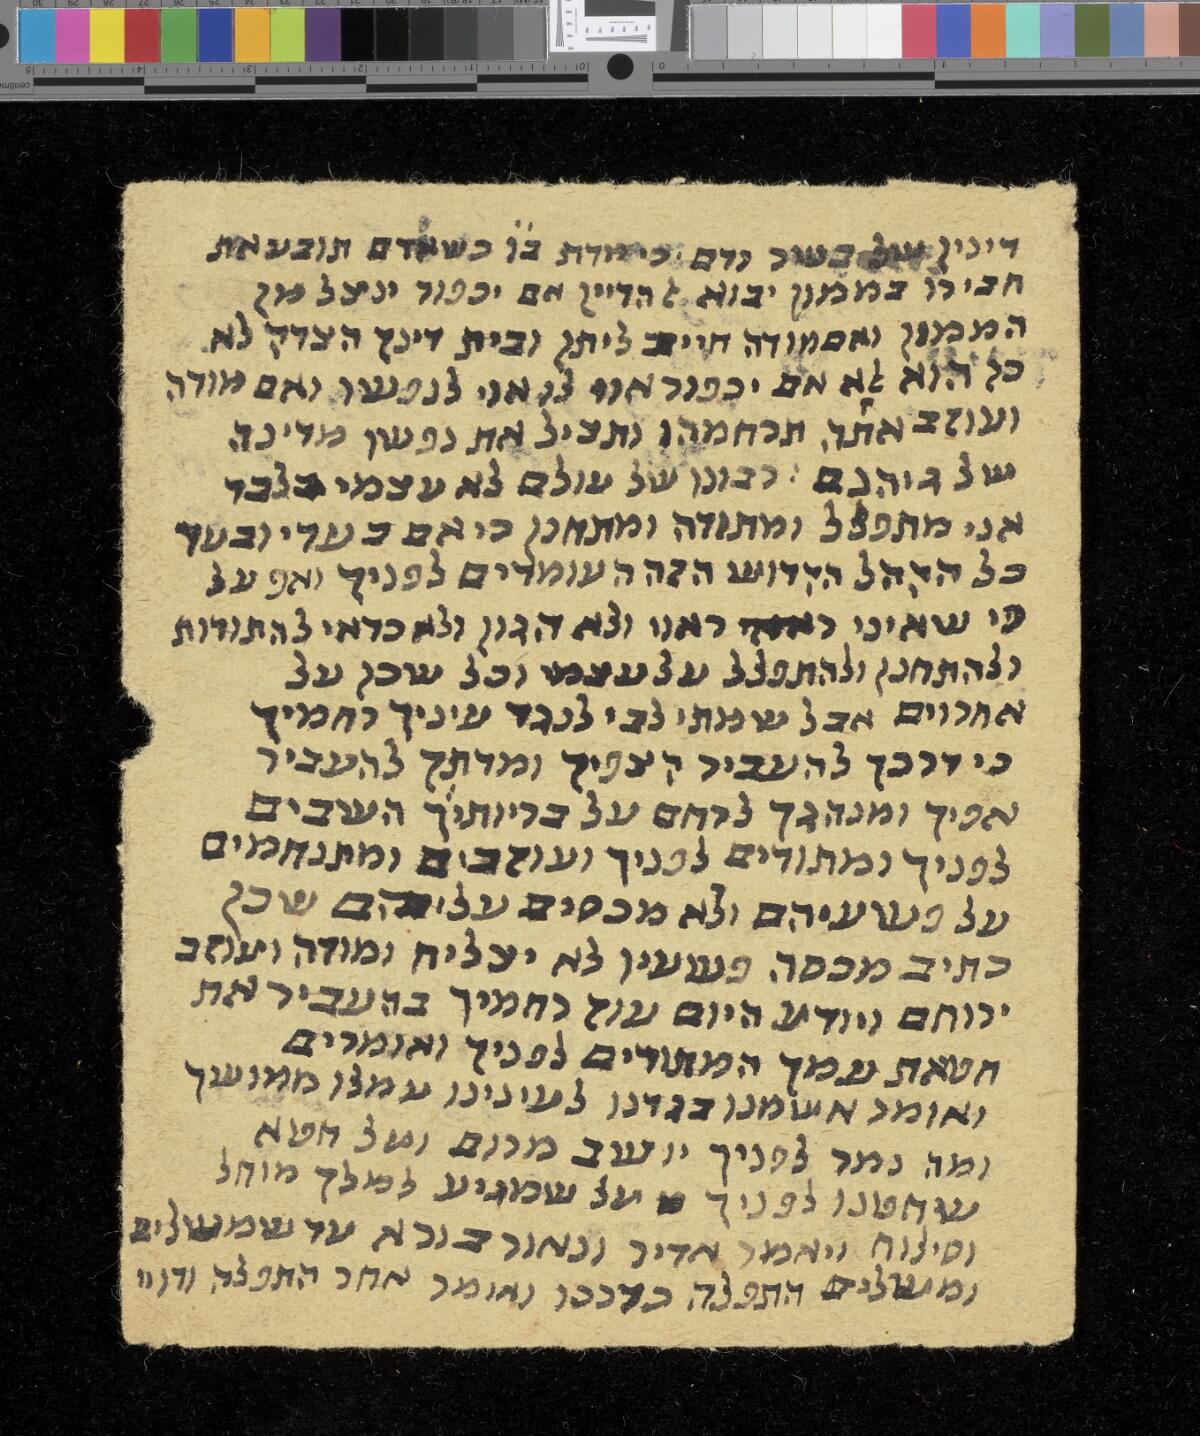 דינין של בשר ודם כי מדת ב״ו כשאדם תובע את
חבירו בממון יבוא להדיין אם יכפור ינצל מן
הממון ואם מודה חייב ליתן ובית דינך הצדק לא
כן הוא לא אם יכפור אוי לו אוי לנפשו ואם מודה
ועוזב אתה תרחמהו ותציל את נפשו מדינה
של גיהנם : רבונו של עולם לא עצמי בלבד
אני מתפלל ומתודה ומתחנן כי אם בעדי ובעד
כל הקהל הקדוש הזה העומדים לפניך ואף על
פי שאיני ראוי ולא הגון ולא כדאי להתודות
ולהתחנן ולהתפלל על עצמי וכל שכן על
אחרוים אבל שמתי לבי לנגד עיניך רחמיך
כי דרכך להעביר קצפיך ומדתך להעביר
אפיך ומנהגך לרחם על בריותיך השבים
לפניך ומתודים לפניך ועוזבים ומתנחמים
על פשעיהם ולא מכסים עליהם שכן
כתיב מכסה פשעיו לא יצליח ומודה ועוזב
ירוחם ויודע היום עוז רחמיך בהעביר את
חטאת עמך המתודים לפניך ואומרים
ואומר אשמנו בגדנו לעינינו עמלו ממושך
ומה נמר לפניך יושב מרום ועל חטא
שחטנו לפניך על שמגיע למלך מוחל
וסילוח ויאמר אדיר ונאור בורא עד שמשלים
ומשלים התפלה כדרכו ואומר אחר התפלה ודוי